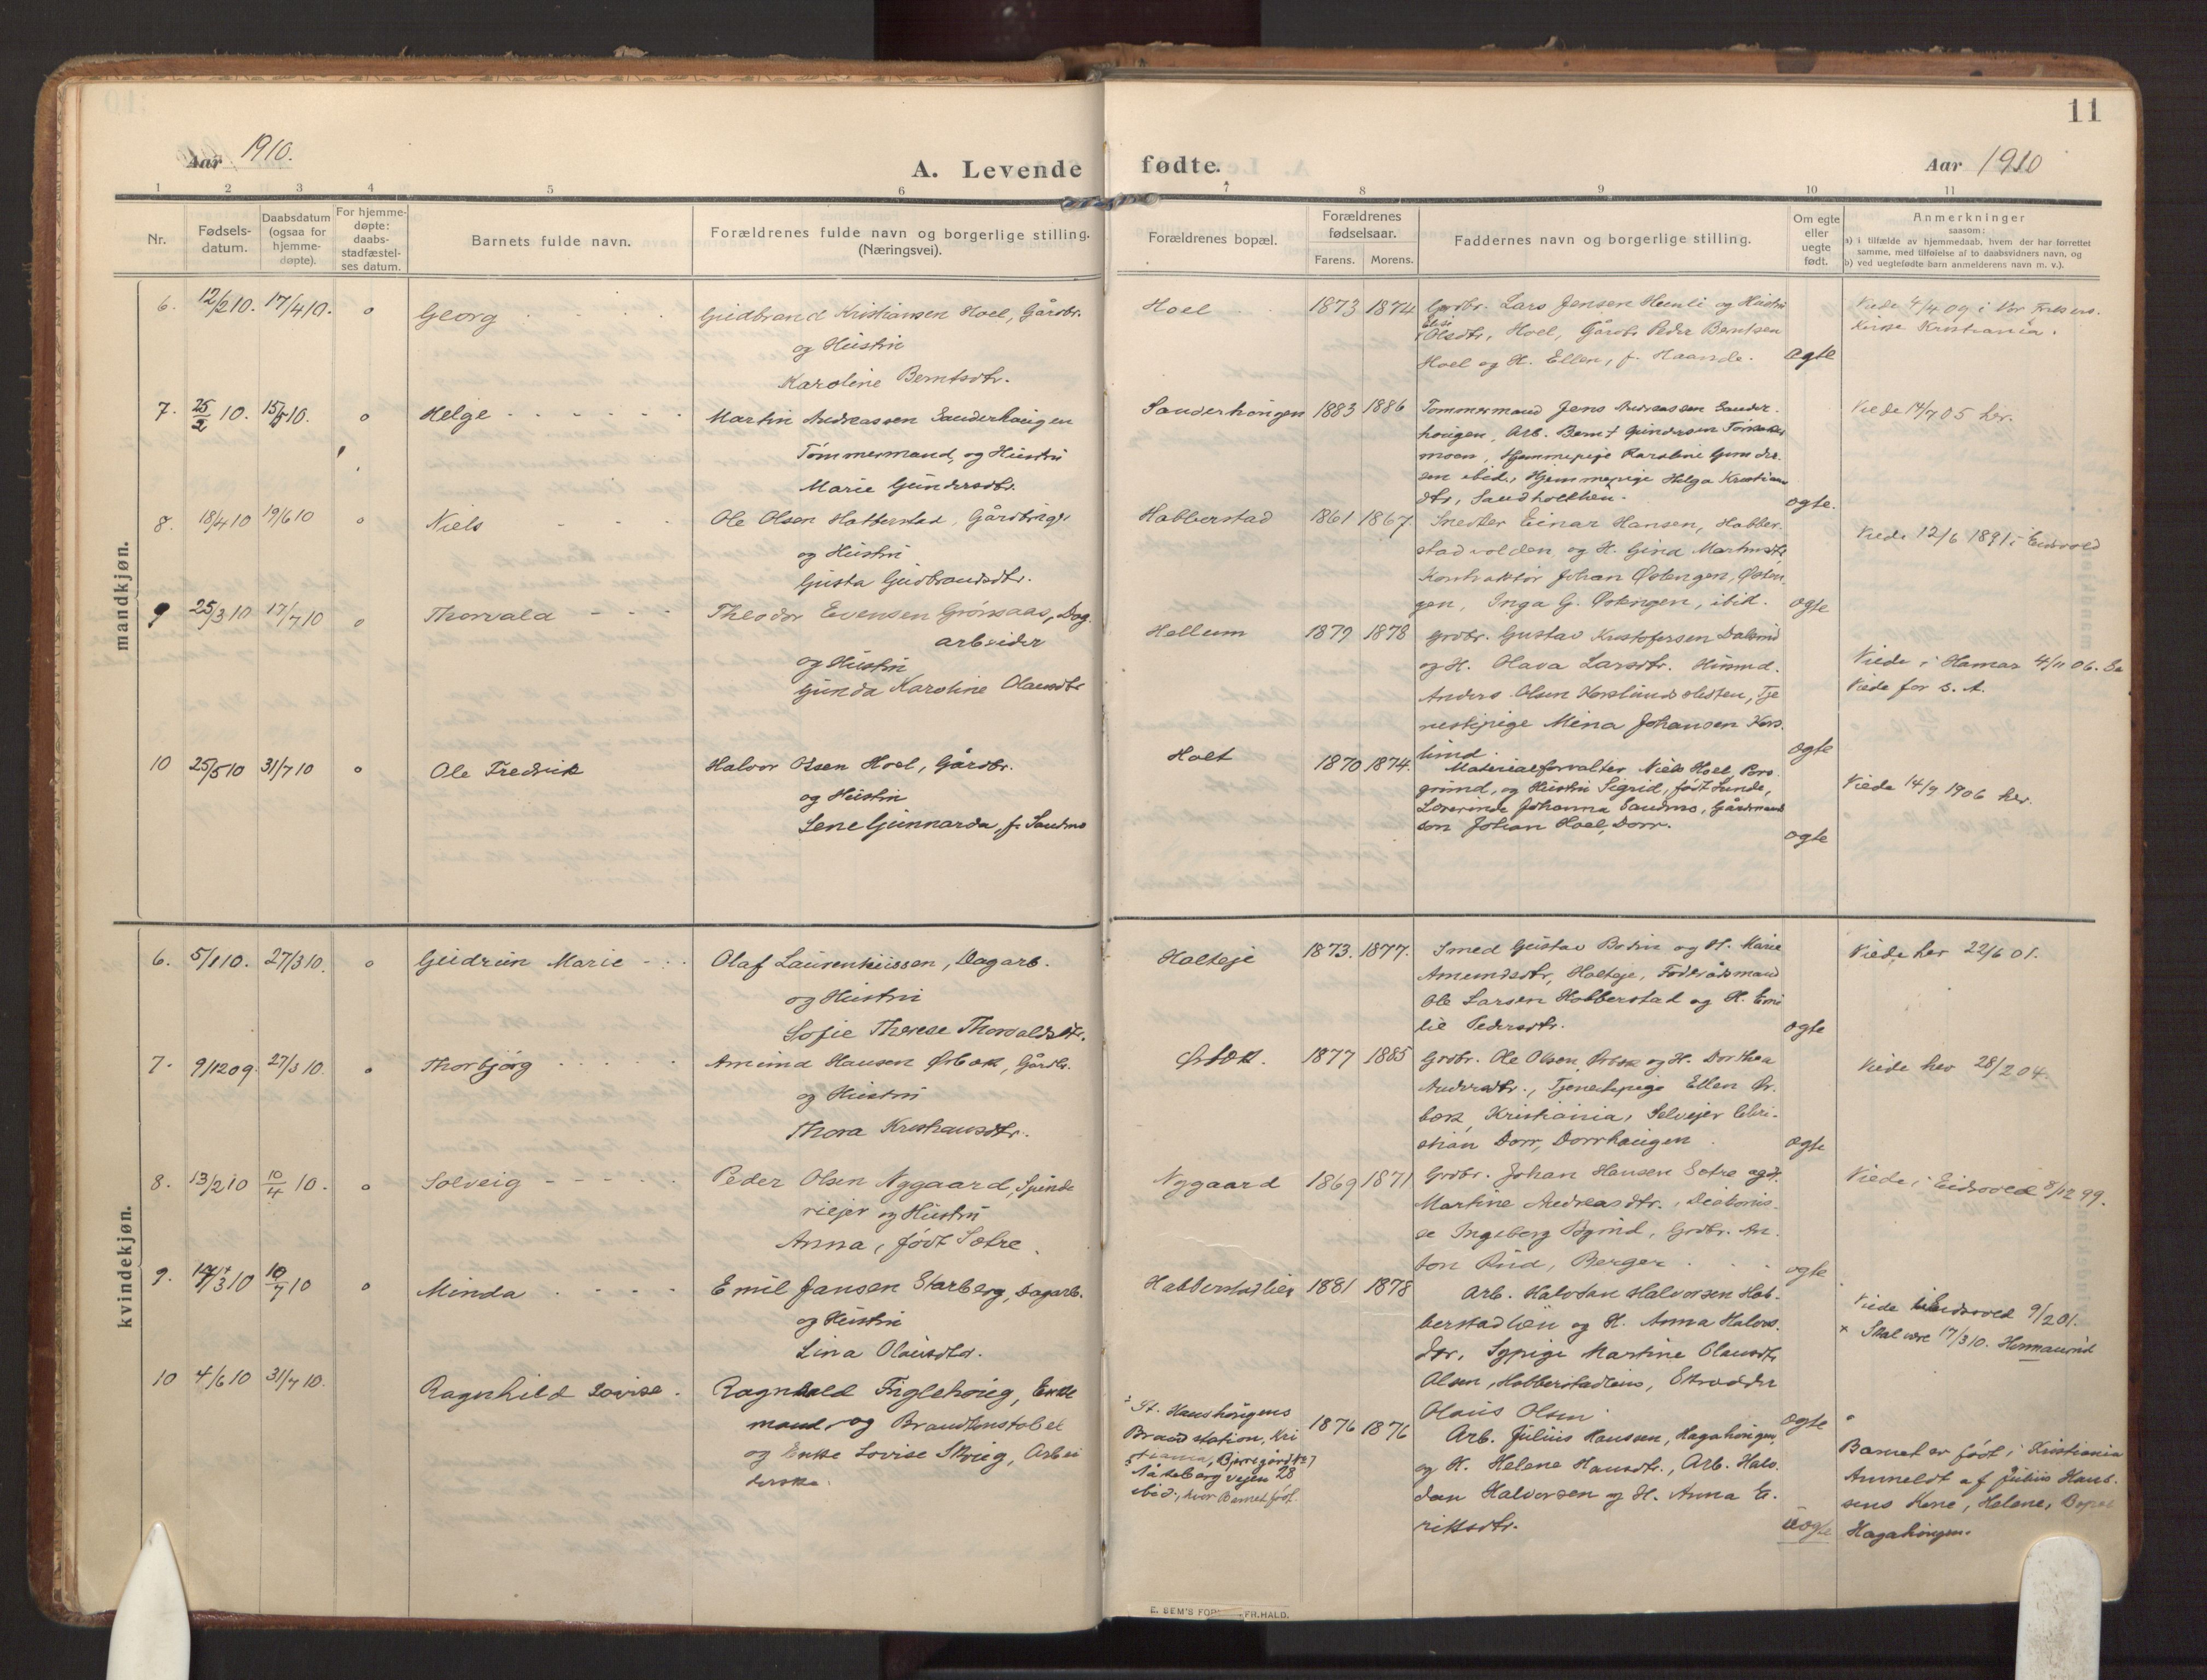 11
Aar 1910.
A. Levende fødte.
Aar 1910
1 2 3 4 5 6 7 8 9 10 11
Nr.
Fødsels-
datum.
Daabsdatum
(ogsaa for
hjemme-
døpte).
For hjemme-
døpte:
daabs-
stadfæstel-
ses datum.
Barnets fulde navn.
Forældrenes fulde navn og borgerlige stilling.
(Næringsvei).
Forældrenes bopæl.
Forældrenes
fødselsaar.
Farens. Morens.
Faddernes navn og borgerlige stilling.
Om egte
eller
uegte
født.
Anmerkninger
saasom:
a) i tilfælde av hjemmedaab, hvem der har forrettet
samme, med tilføielse af to daabsvidners navn, og
b) ved uegtefødte barn anmelderens navn m. v.).
mandkjøn.
6. 12/2 10. 17/4 10. o Georg
Gudbrand Kristiansen Hoel, Gårdbr.
og Hustru
Karoline Berntsdtr.
Hoel 1873 1874
Grdbr. Lars Jensen Henli og Hustru
Elise
Olsdtr, Hoel, Gårdbr Peder Berntsen
Hoel og H. Ellen, f. Haande.
ægte
Viede 4/4 09 i Vor Frelsers
Kirke Kristiania.
7. 25/2 10. 15/5 10. o Helge
Martin Andreassen Sanderhaugen
Tømmermand, og Hustru
Marie Gundersdtr.
Sanderhougen 1883 1886
Tømmermand Jens Andreassen Sander-
hougen, Arb. Bernt Gundersen
moen, Hjemmepige Karoline Gunder
sen ibid., Hjemmepige Helga Kristians
dtr,
ægte.
Viede 14/7 05 her.
8. 18/4 10 19/6 10 o Niels
Ole Olsen Habberstad, Gårdbruger
og Hustru
Gusta Gudbrandsdtr.
Habberstad 1861 1867.
Snedker Einar Hansen, Habber-
stadvolden og H. Gina Martinsdtr,
Kontraktør Johan Østengen, Østen
gen, Inga G. Østengen, ibid.
ægte
Viede 12/6 1891 i Eidsvold
9 25/3 10 17/7 10 o Thorvald
Theodor Evensen Grønsaas, Dag.
arbeider
og Hustru
Gunda Karoline Olausdtr
Hellum 1879 1878
Grdbr. Gustav Kristofersen
og H. Olava Larsdtr.
Anders Olsen, Tje
nestepige Mina Johansen Hors
lund.
ægte
Viede i Hamar 4/11 06.
Viede for s. A.
10 25/5 10 31/7 10 o Ole Fredrik
Halvor Olsen Hoel, Gårdbr.
og Hustru
Lene Gunnarda, f. Sandmo
Holt 1870 1874.
Materialforvalter Niels Hoel, Pors
grund, og Hustru Sigrid, født Lunde,
Lærerinde Johanna Sandmo, Gårdmand
søn Johan Hoel, Dorr.
ægte
Viede 14/9 1906 her.
kvindekjøn.
6. 5/1 10. 27/3 10. o Gudrun Marie
Olaf Laurentiussen, Dagarb.
og Hustru
Sofie Therese Thorvaldsdtr.
Holteje 1873. 1877.
Smed Gustav Bodin og H. Marie
Amundsdtr, Holteje, Føderådsmand
Ole Larsen Habberstad og H. Emi
lie Pedersdtr.
ægte
Viede her 22/6 01.
7. 9/12 09. 27/3 10. o Thorbjørg
Amund Hansen Ørbæk, Gårdbr.
og Hustru
Thora Kristiansdtr.
Ørbæk. 1877 1885
Grdbr. Ole Olsen Ørbæk og H. Dorthea
Andersdtr., Tjenestepige Ellen Ør
bæk, Kristiania, Selvejer Chri-
stian Dorr, Dorrhaugen.
ægte
Viede her 28/2 04.
8. 13/2 10 10/4 10. o Solveig
Peder Olsen Nygaard,
riejer og Hustru
Anna, født Sætre.
Nygaard 1869 1871
Grdbr. Johan Hansen Sætre og H.
Martine Andreasdtr., Diakonis-
se Ingeborg Bjørud, Grdbr. An.
ton Rud, Berger
ægte
Viede i Eidsvold 8/12 99.
9. 17/3 10 10/7 10 o Minda
Emil Jansen Starberg, Dagarb.
og Hustru
Lina Olausdtr.
Habberstadlien 1881 1878
Arb. Halvdan Halvorsen Hab-
berstadlien og H. Anna Halvors.
dtr, Sypige Martine Olausdtr
Olsen, Habberstadlien, Skrædder
Olaus Olsen.
ægte
Viede i Eidsvold 9/2 01.
x Skal være 17/3 10.
10 4/6 10 31/7 10. Ragnhild Lovise.
Ragnvald Fuglehoug, Enke
mand og Brandkonstabel
og Enke Lovise Skoug, Arbei
derske.
St. Hanshougens
Brandstation, Kri
stiania,
vejen 28
ibid., hvor Barnet født.
1876 1876
Arb. Julius Hansen, Hagahougen,
og H. Helene Hansdtr., Arb. Halv.
dan Halvorsen og H. Anna E.
riksdtr.
uægte
Barnet er født i Kristiania
Anmeldt af Julius Han-
sens Kone, Helene, Bopæl
Hagahougen.
E. SEM'S FOR FR.HALD.